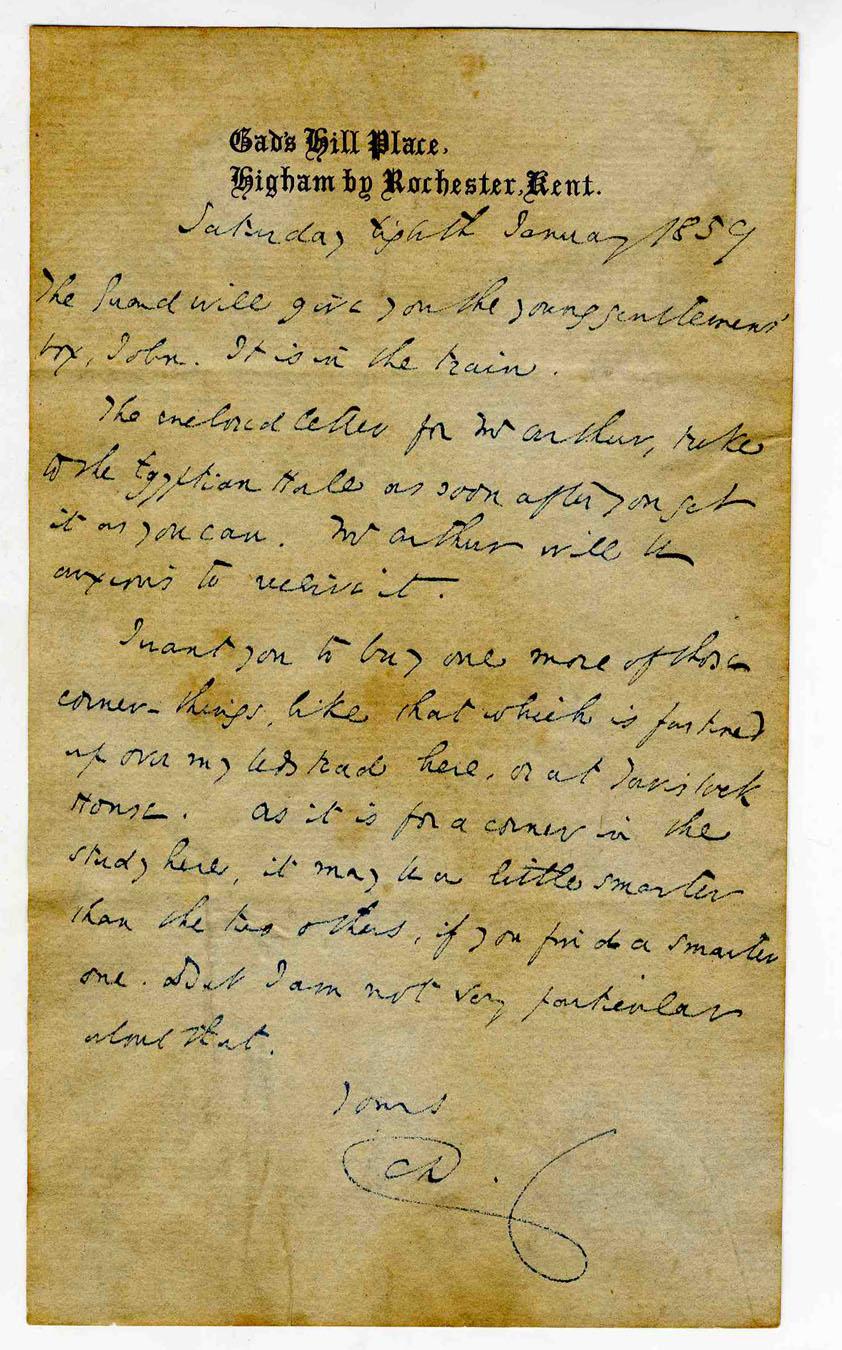 Gad's Hill Place,
Higham by Rochester, Kent.
Saturday Eighth January 1859
The Guard will give you the young gentlemens'
box, John. It is in the train.
The enclosed letter for Mr Arthur, take
to the Egyptian Hall as soon after you get
it as you can. Mr Arthur will be
anxious to receive it.
I want you to buy one more of those
corner-things, like that which is fastened
up over my bedstead here, or at Tavistock
House. As it is for a corner in the
study here, it may be a little smarter
than the two others, if you find a smarter
one. But I am not very particular
about that.
Yours
CD.